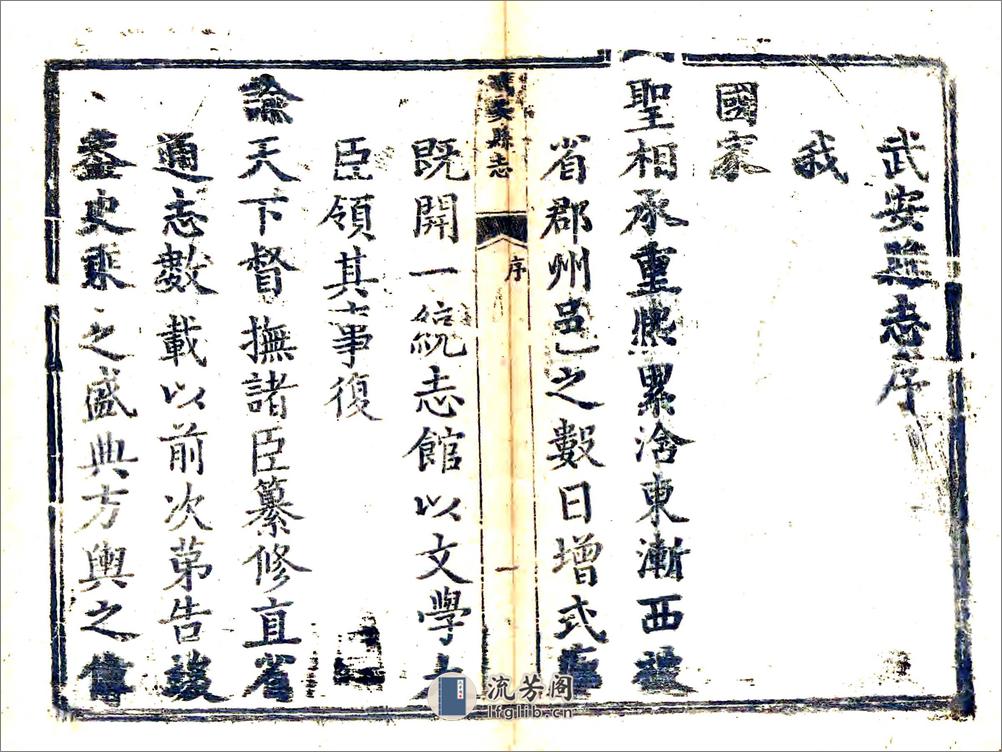 武安縣志序
我
國家
聖相承重熙累洽東漸西被
省郡州邑之數日增式
武安縣志
序
一
既開一統志館以文學大
臣領其事復
諭天下督撫諸臣纂修直省
通志數載以前次第告竣
盡史乘之盛典方輿之
流芳阁
lfglib.cn